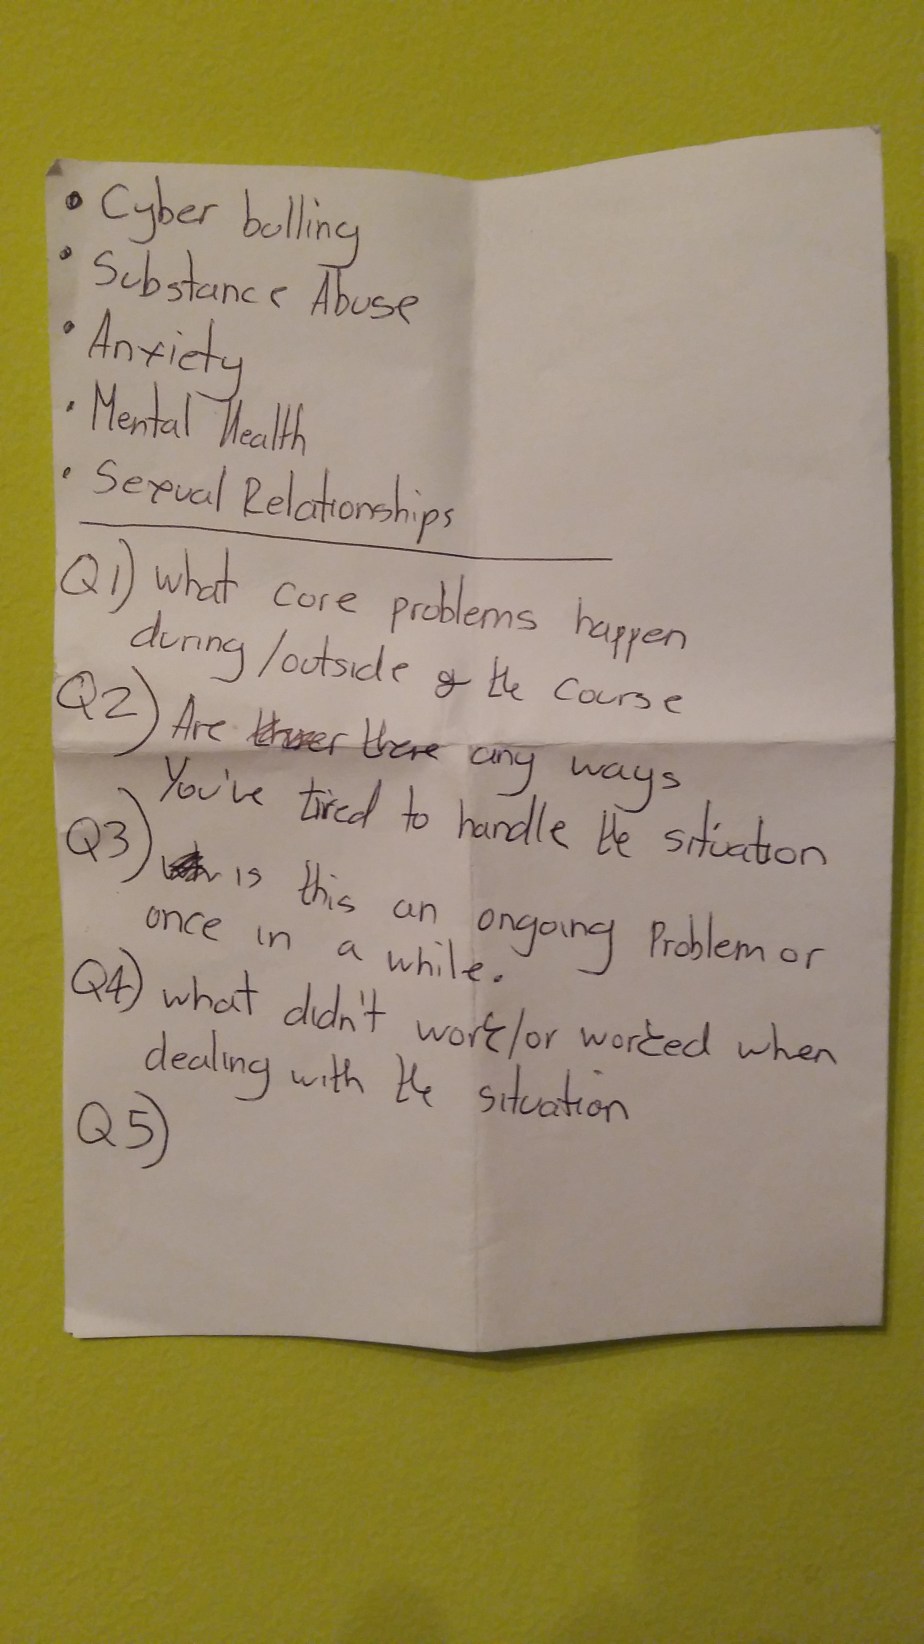 • Cyber bulling
• Substance Abuse
• Anxiety
• Mental Health
• Sexual Relationships
Q1) what core problems happen
during/outside of the course
Q2) Are there any ways
You've tired to handle the situation
Q3) is this an ongoing Problem or
once in a while.
Q4) what didn't work/or worked when
dealing with the situation
Q5)